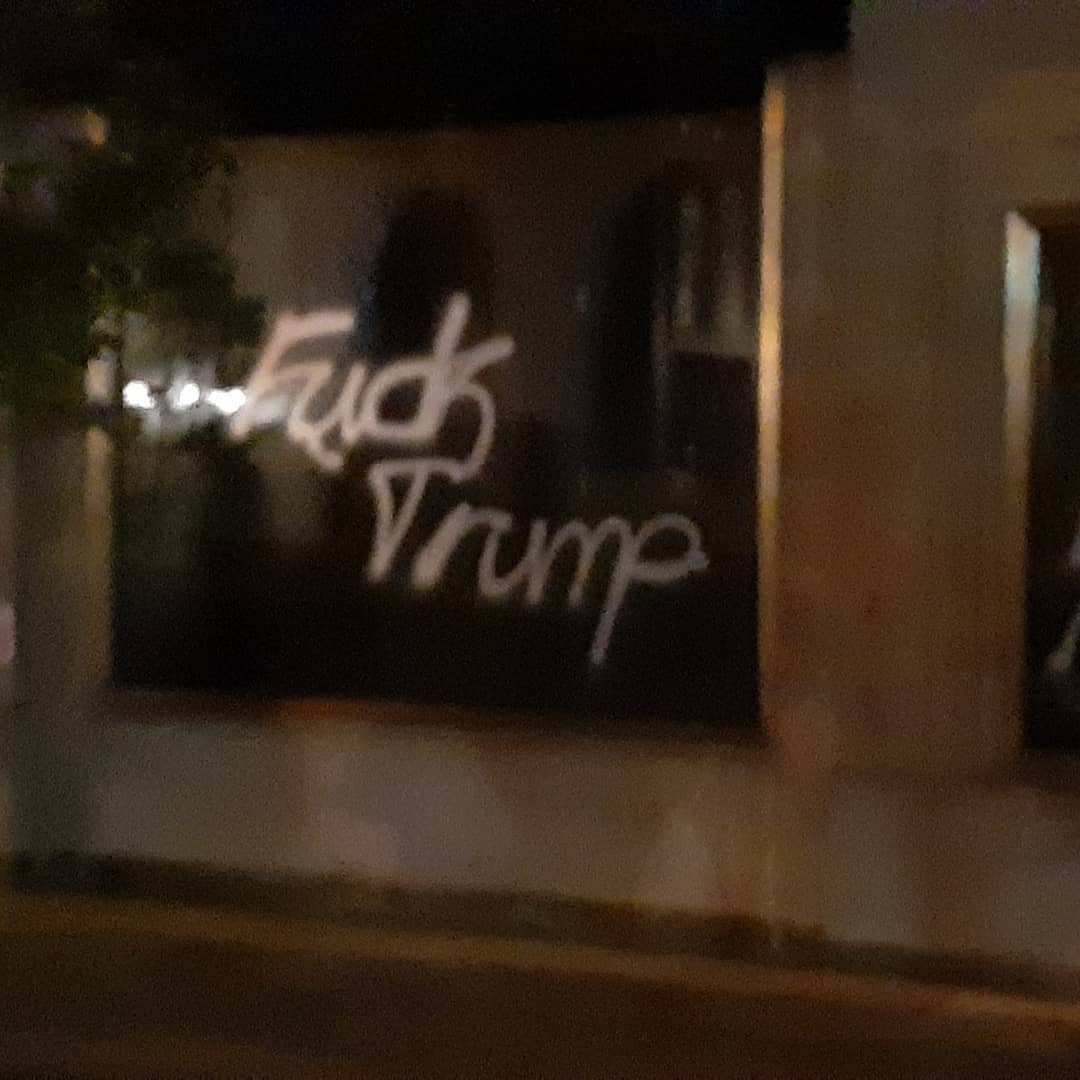 Fuck
Trump